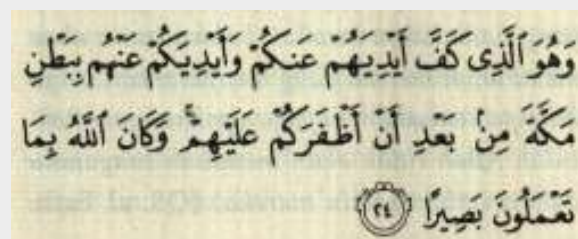 وَهُوَ ٱلَّذِى كَفَّ أَيْدِيَهُمْ عَنكُمْ وَأَيْدِيَكُمْ عَنْهُم بِبَطْنِ
مَكَّةَ مِنۢ بَعْدِ أَنْ أَظْفَرَكُمْ عَلَيْهِمْ ۚ وَكَانَ ٱللَّهُ بِمَا
تَعْمَلُونَ بَصِيرًا ﴿٢٤﴾